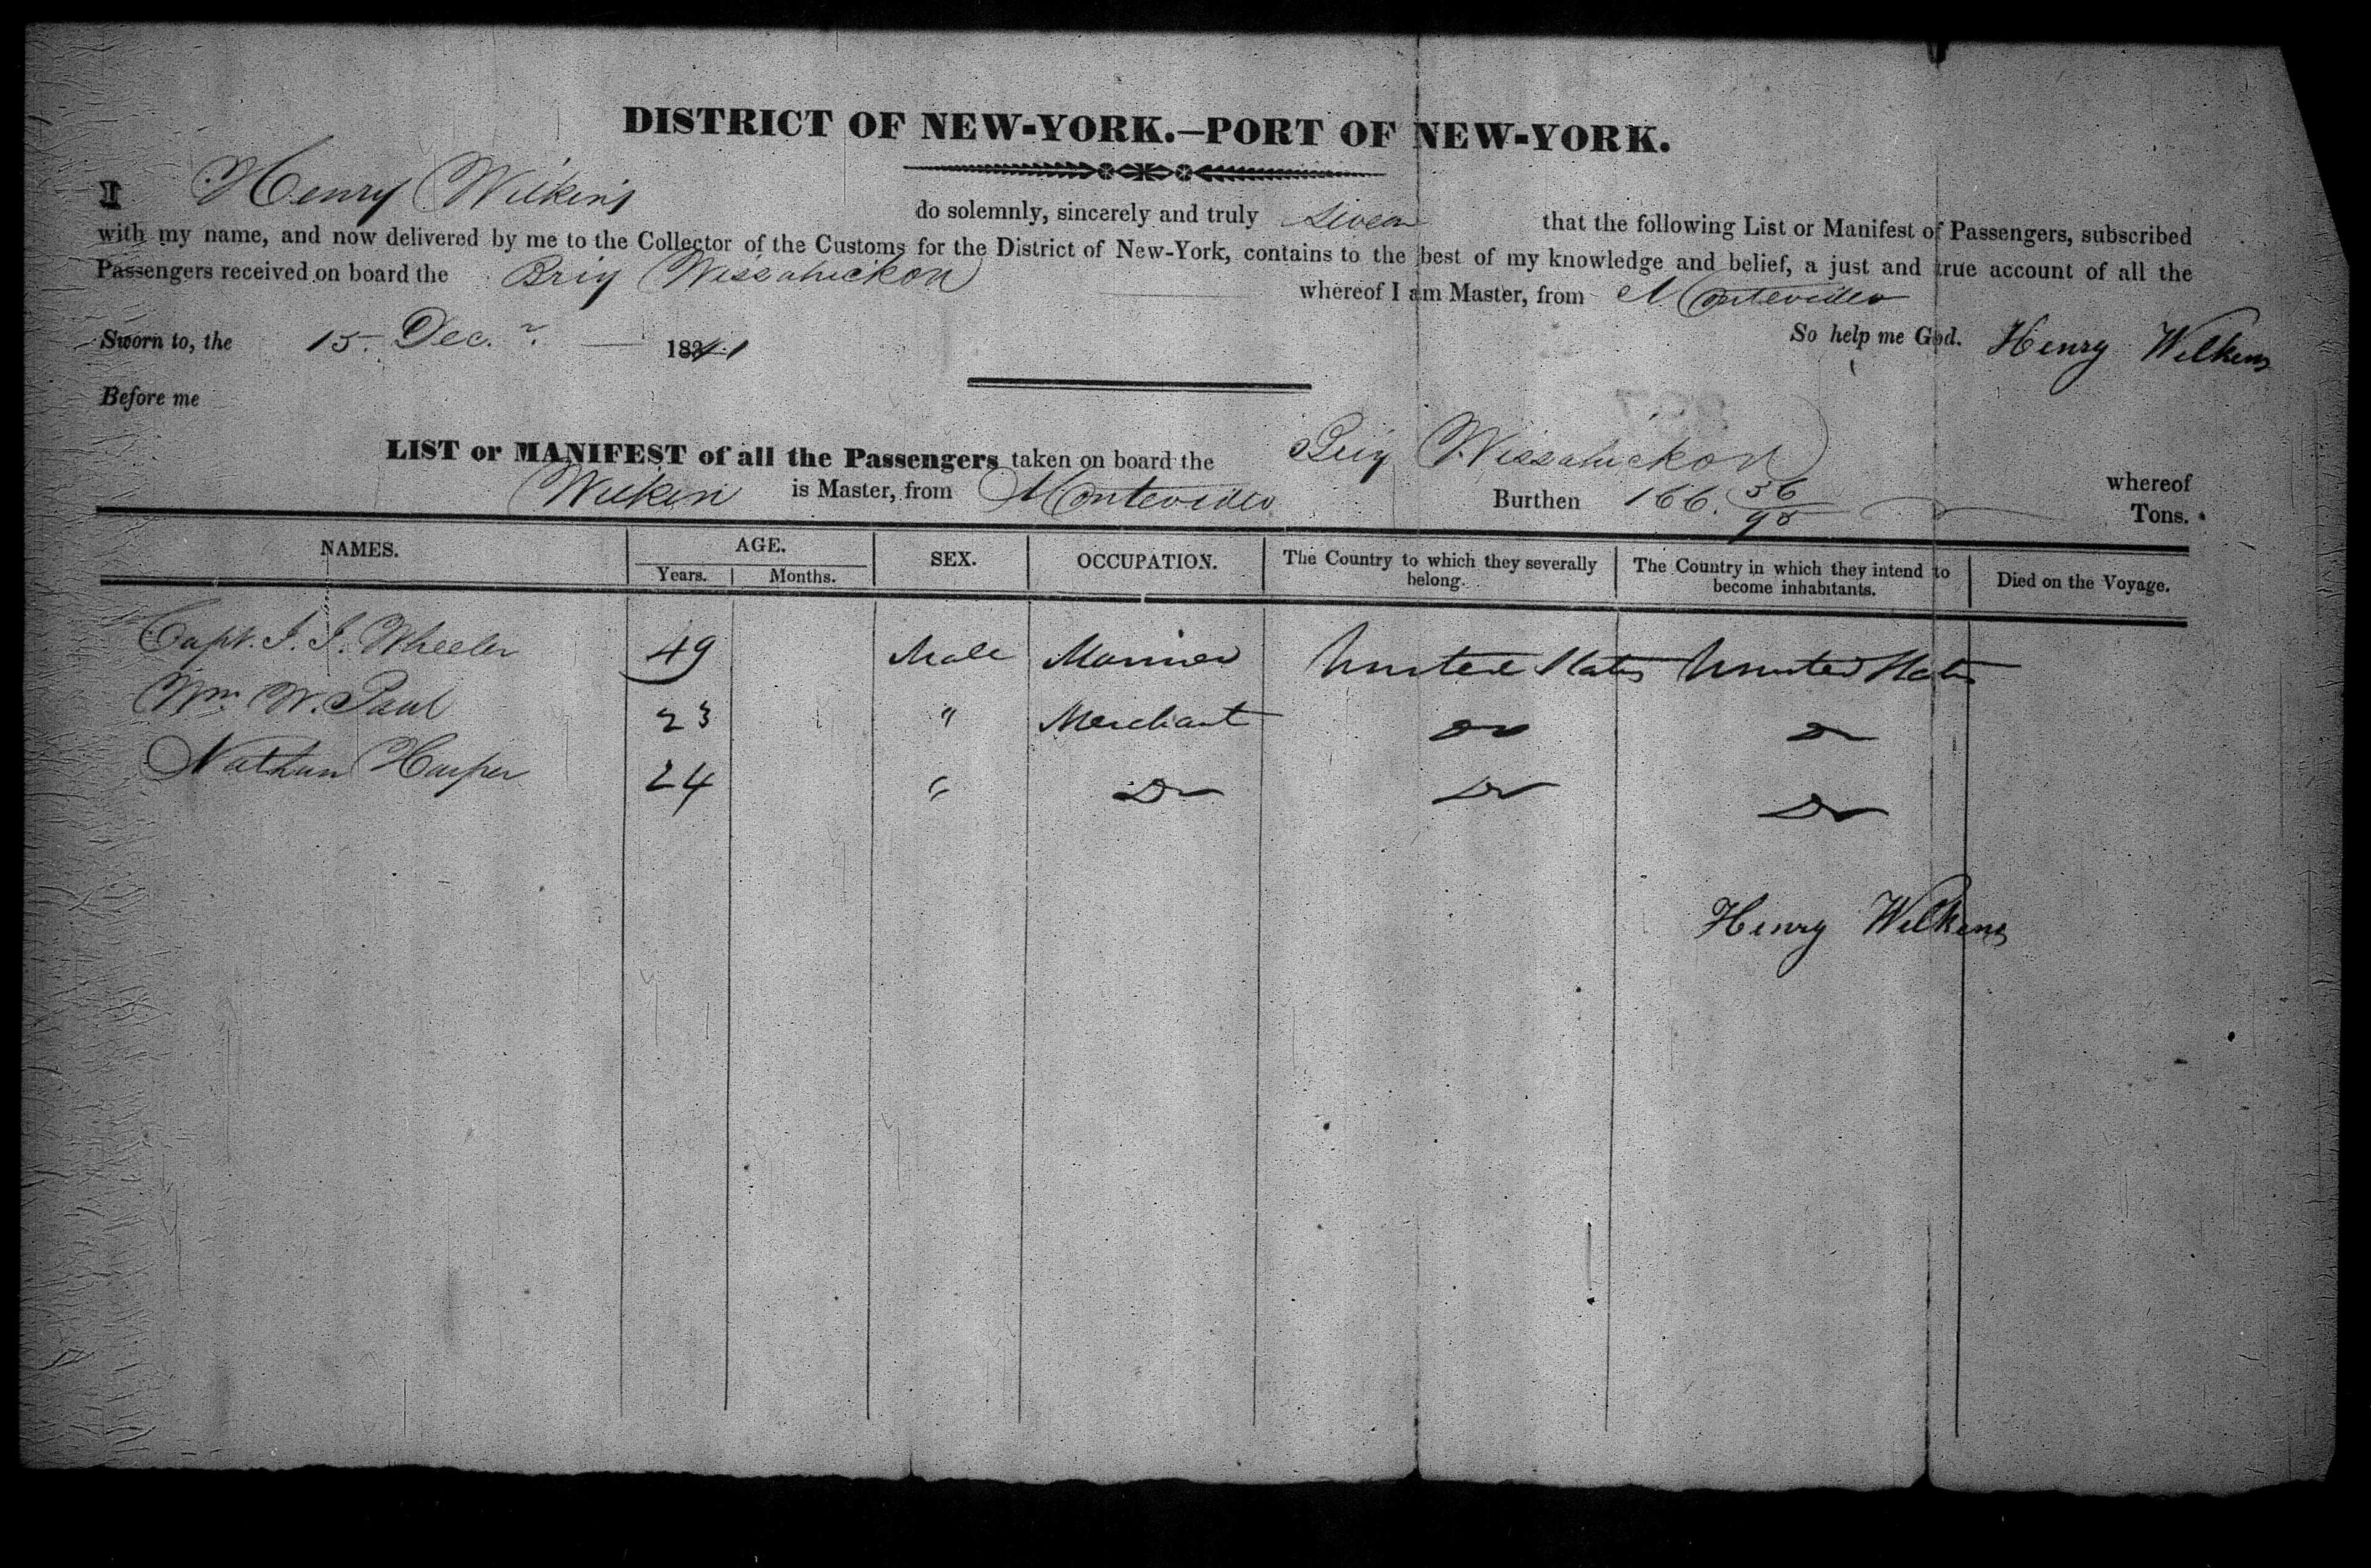 DISTRICT OF NEW-YORK.—PORT OF NEW-YORK.
I Henry Wilkins do solemnly, sincerely and truly Swear that the following List or Manifest of Passengers, subscribed
with my name, and now delivered by me to the Collector of the Customs for the District of New-York, contains to the best of my knowledge and belief, a just and true account of all the
Passengers received on board the Brig Wissahickon whereof I am Master, from Montevideo
So help me God. Henry Wilkens
Sworn to, the 15 Dec.r 1841
Before me
LIST or MANIFEST of all the Passengers taken on board the Brig Wissahickon whereof
Wilkin is Master, from Montevideo Burthen 166. 56/95 Tons.
NAMES. AGE. SEX. OCCUPATION. The Country to which they severally belong. The Country in which they intend to become inhabitants. Died on the Voyage.
Years. Months.
Capt. J. J. Wheeler 49 Male Mariner United States United States
Wm. W. Paul 23 " Merchant Do Do
Nathan Harper 24 " Do Do Do
Henry Wilkens